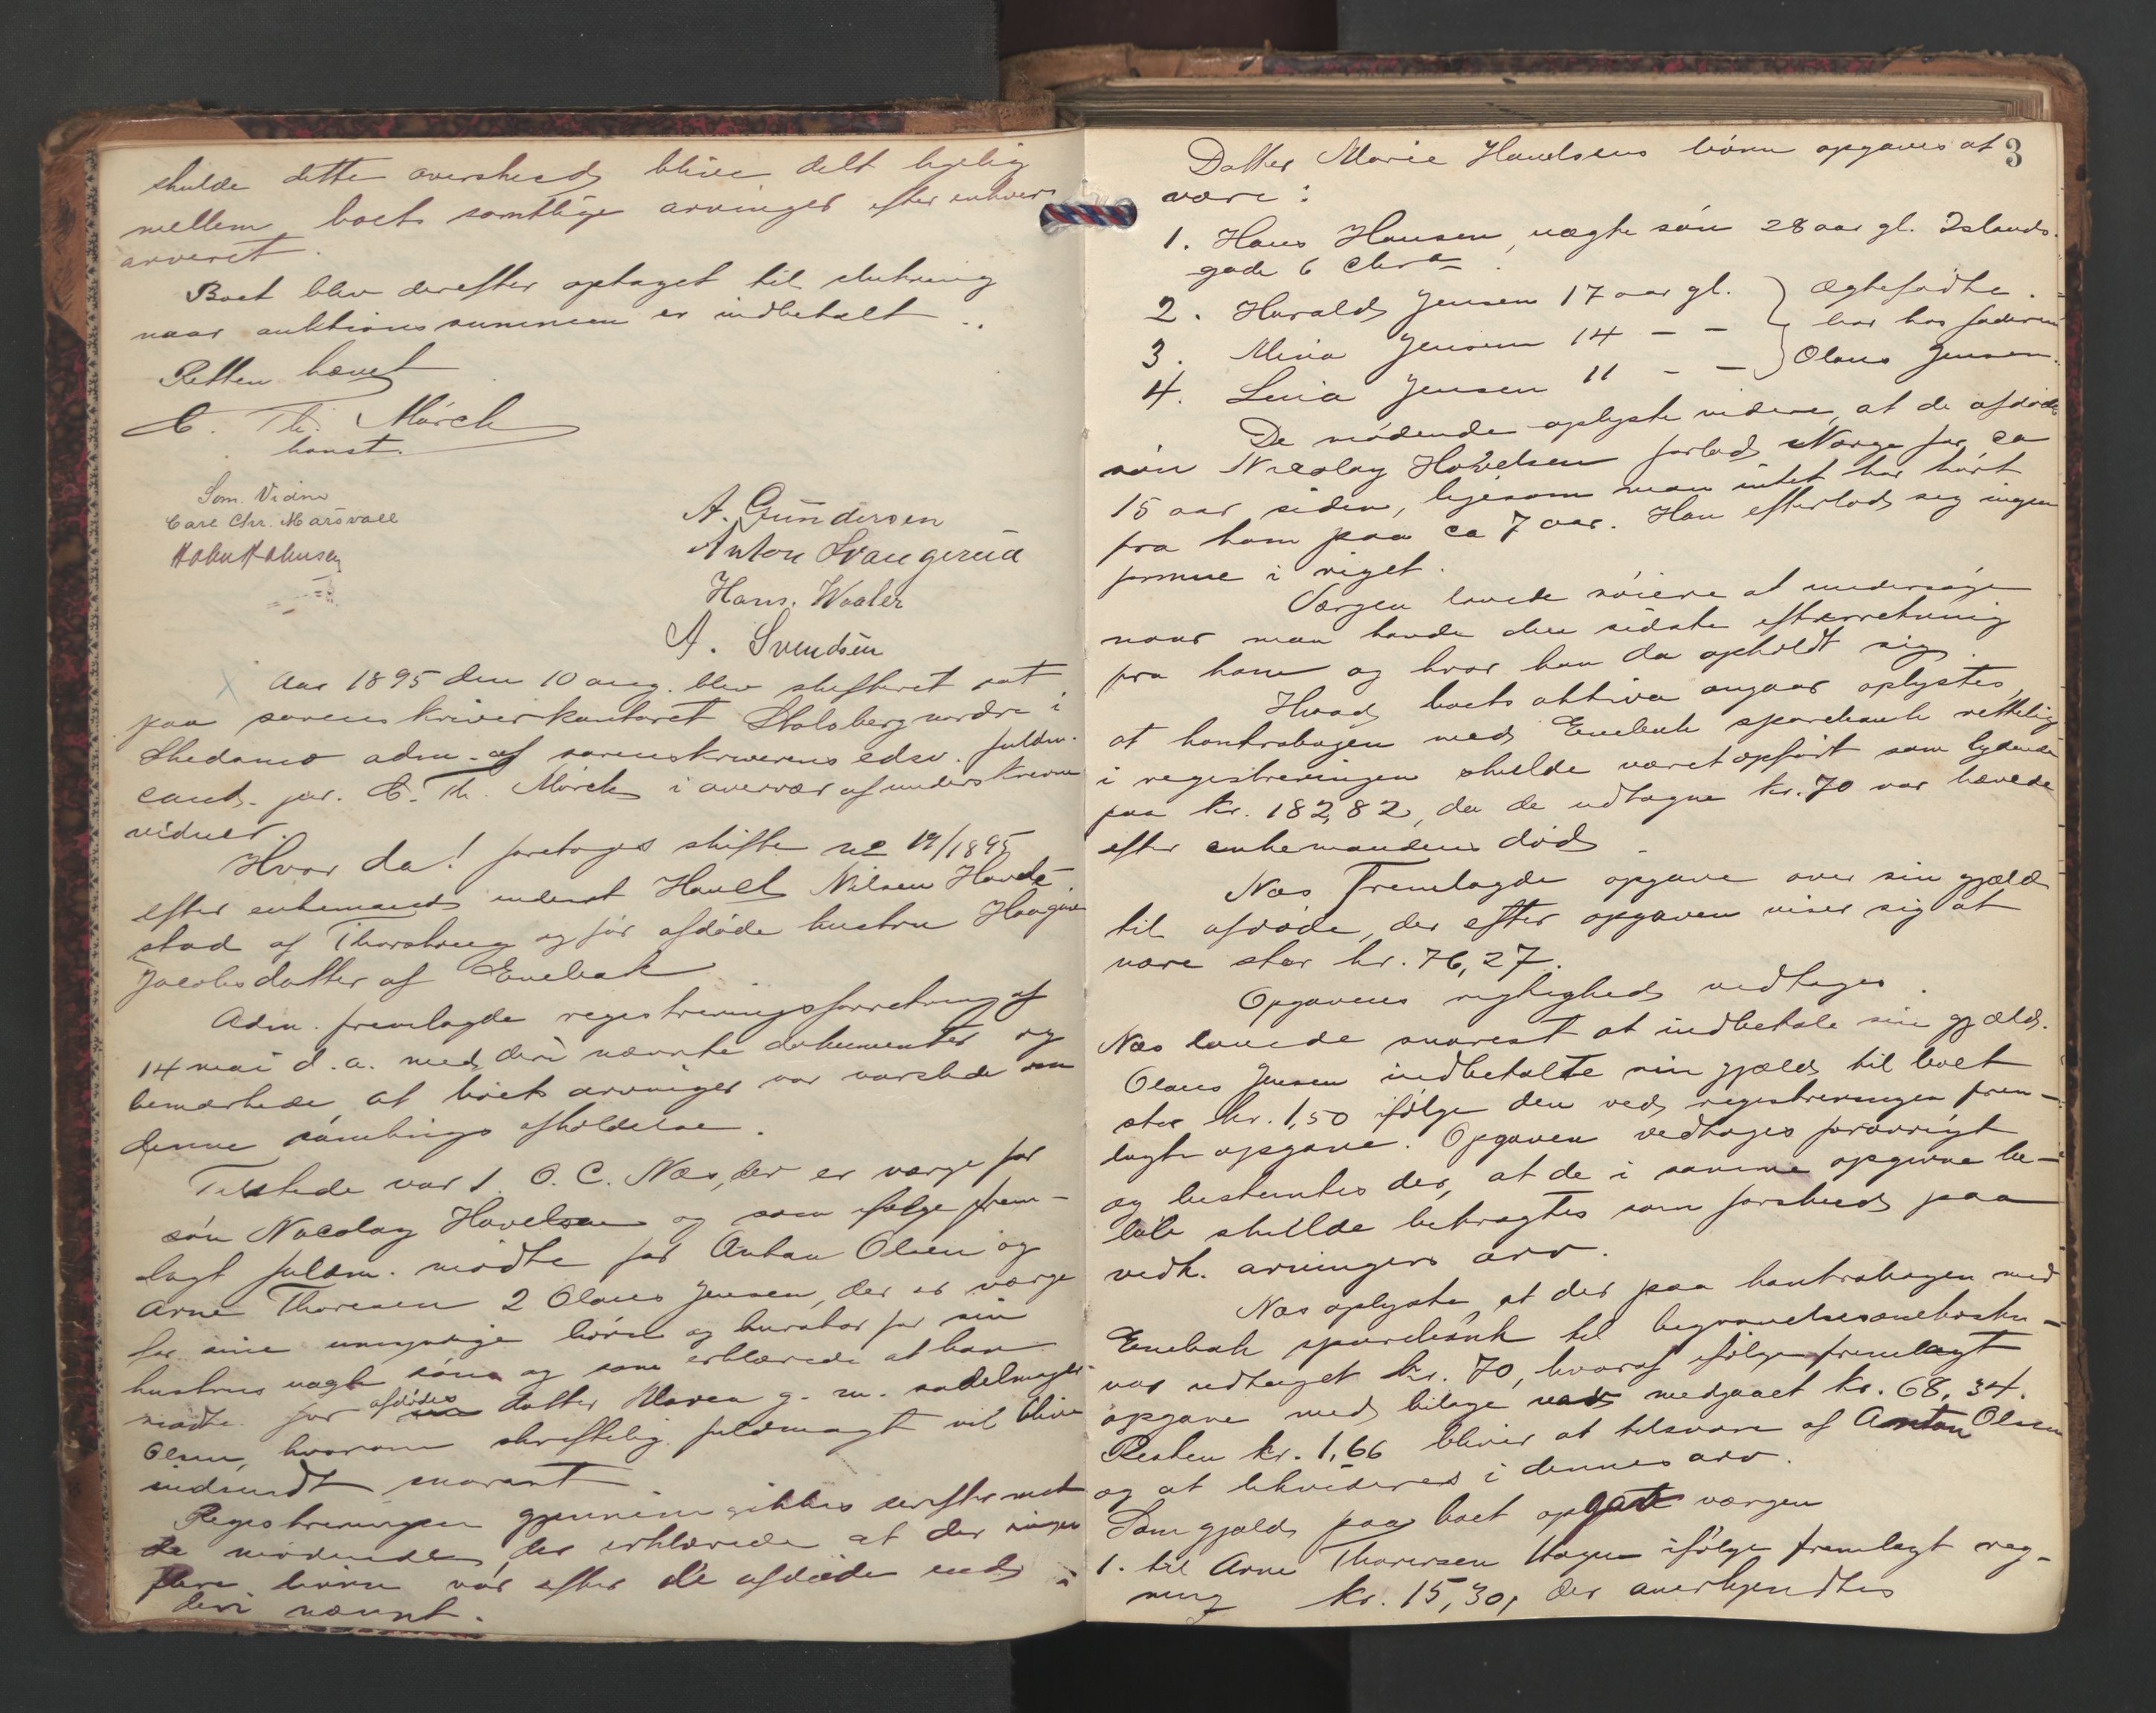 skulde dette overskud blive delt ligelig
mellem boets samtlige arvinger efter enhvers
arveret.
Boet blev derefter optaget til slutning
naar auktionssummen er indbetalt.
Retten hævet
C. Th. Mörch
konst.
Som Vidne
Carl Chr. Marsvall
A. Gundersen
Anton Svangerud
Hans. Waaler
A. Svendsen
Aar 1895 den 10 aug. blev skifteret sat
paa sorenskriverkontoret Stalsberg nordre i
Skedsmo adm. af sorenskriverens edsv. fuldm.
cand. jur. C. Th. Mörch i overvær af underskrevne
vidner.
Hvor da! foretoges skifte no 19/1895
efter enkemand inderst Havel Nilsen Hovde-
stad af Thorstrug og før afdöde hustru
Jacobsdatter af Enebak
Adm. fremlagde registreringsforretning af
14 mai d. a. med deri nævnte dokumenter og
bemærkede, at boets arvinger var varslede om
denne samlings afholdelse.
Tilstede var 1. O. C. Næs, der er værge for
sön Nicolay Havelsen og som ifølge frem-
lagt fuldm. mödte for Anton Olsen og
Arne Thoresen 2 Olaus Jensen, der er værge
for sine umyndige börn og kurator for sin
hustrus uægte søn og som erklærede at han
mödte for afdödes datter Maren g. m. sadelmager
Olsen, hvorom skriftelig fuldmagt vil blive
indsendt snarest
Registreringen gjennemgikkes derefter med
de mödende der erklærede at der ingen
flere börn var efter de afdöde end i
den nævnt.
3
Datter Marie Havelsens börn opgaves at
være:
1. Hans Hansen, uægte sön 28 aar gl. Islands-
gade 6 Chra.
2. Harald Jensen 17 aar gl. } Ægtefödte.
3. Mina Jensen 14 - - } bor hos faderen
4. Lina Jensen 11 - - } Olaus Jensen.
De mödende oplyste videre, at de afdödes
sön Nicolay Havelsen forlod Norge for ca
15 aar siden, ligesom man intet har hört
fra ham paa ca 7 aar. Han efterlod sig ingen
formue i riget.
Værgen lovede nöiere at undersöge
naar man havde den sidste efterretning
fra ham og hvor han da opholdt sig.
Hvad boets aktiva angaar oplystes
at kontrabogen med Enebak sparebank rettelig
i registreringen skulde været opfört som lydende
paa kr. 182,82, da de udtagne kr. 70 var hævede
efter enkemandens död.
Næs fremlagde opgave over sin gjæld
til afdöde, der efter opgaven viser sig at
være stor kr. 76,27.
Opgavens rigtighed vedtoges.
Næs lovede snarest at indbetale sin gjæld.
Olaus Jensen indbetalte sin gjæld til boet
stor kr. 1,50 ifölge den ved registreringen frem-
lagte opgave. Opgaven vedtoges forövrigt
og bestemtes der, at de i samme opgivne be-
löb skulde betragtes som forskud paa
vedk. arvingers arv.
Næs oplyste, at der paa kontrabogen med
Enebak sparebank til begravelsesomkostn-
var udtaget kr. 70, hvoraf ifölge fremlagt
opgave med bilage var medgaaet kr. 68,34.
Resten kr. 1,66 bliver at tilsvare af Anton Olsen
og at likvideres i dennes arv.
Som gjæld paa boet opgav værgen
1. til Arne Thoresen Hagen ifölge fremlagt reg-
ning kr. 15,30, der anerkjendtes